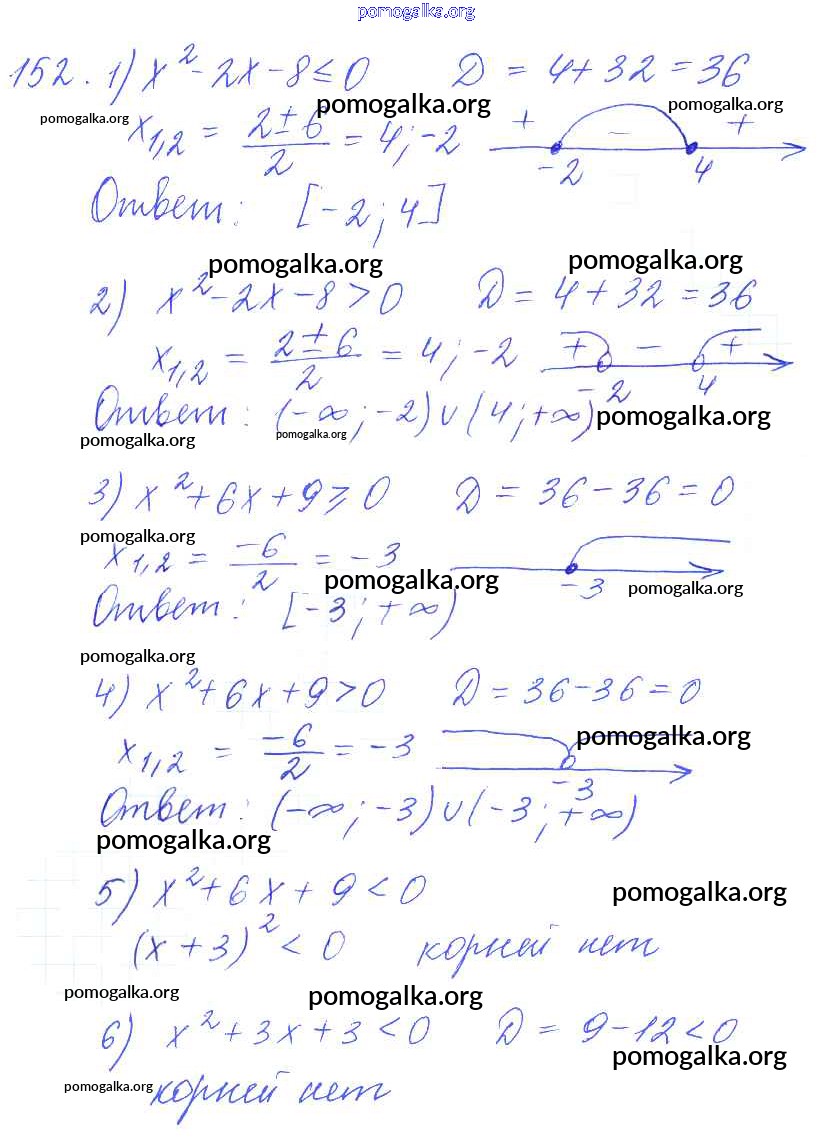 pomogalka.org
152. 1) x² - 2x - 8 ≤ 0 D = 4 + 32 = 36
pomogalka.org pomogalka.org pomogalka.org
x₁,₂ = (2 ± 6)/2 = 4; -2 + - + -2 4
Ответ: [-2; 4]
pomogalka.org pomogalka.org
2) x² - 2x - 8 > 0 D = 4 + 32 = 36
x₁,₂ = (2 ± 6)/2 = 4; -2 + - + -2 4
Ответ: (-∞; -2) ∪ (4; +∞) pomogalka.org
pomogalka.org pomogalka.org
3) x² + 6x + 9 ≥ 0 D = 36 - 36 = 0
pomogalka.org
x₁,₂ = -6/2 = -3 -3
pomogalka.org pomogalka.org
Ответ: [-3; +∞)
pomogalka.org
4) x² + 6x + 9 > 0 D = 36 - 36 = 0
x₁,₂ = -6/2 = -3 pomogalka.org -3
Ответ: (-∞; -3) ∪ (-3; +∞)
pomogalka.org
5) x² + 6x + 9 < 0 pomogalka.org
(x + 3)² < 0 корней нет
pomogalka.org pomogalka.org
6) x² + 3x + 3 < 0 D = 9 - 12 < 0
pomogalka.org
pomogalka.org корней нет